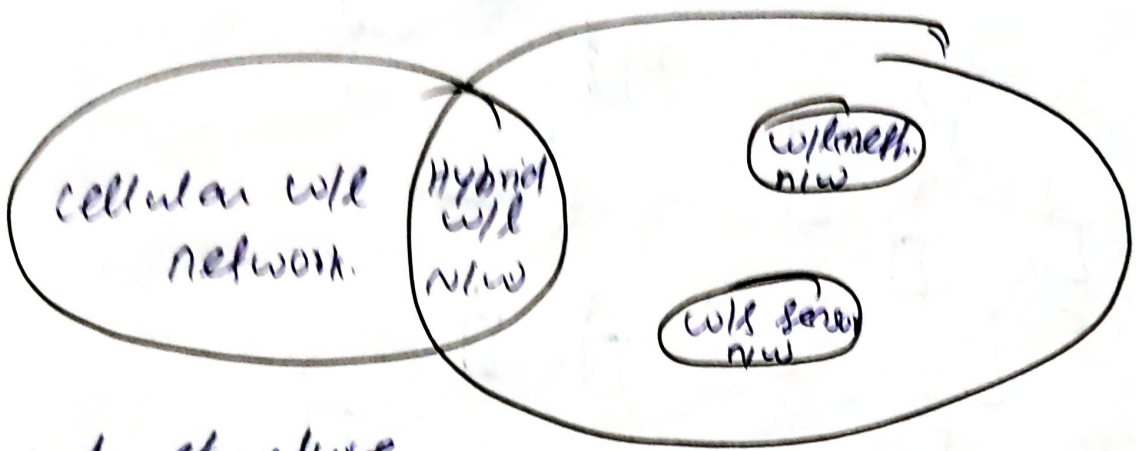 cellular w/l
network.
Hybrid
w/l
N/W
w/l mesh
n/w
w/l senso
n/w